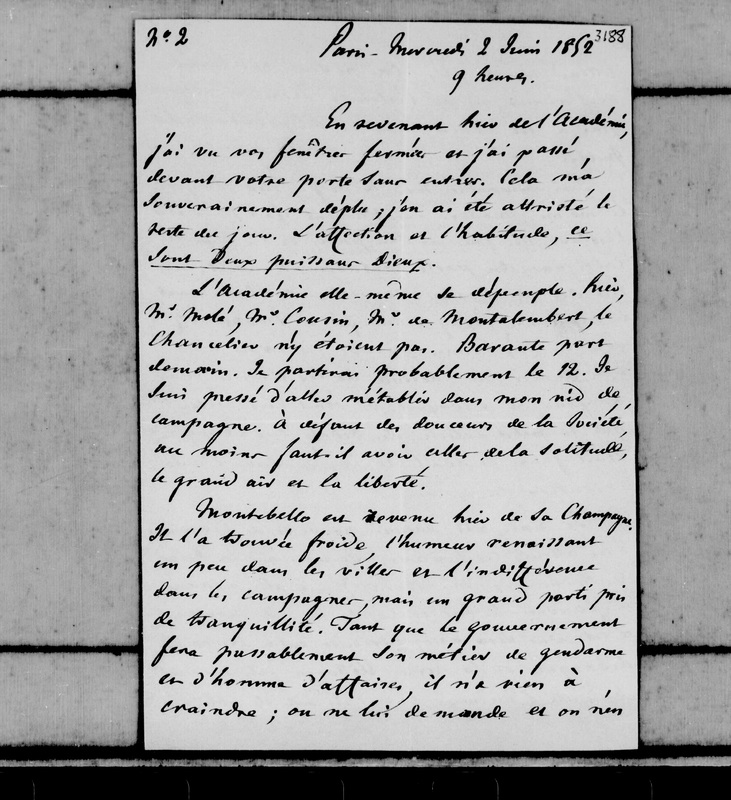 Nº 2
Paris - Mercredi 2 Juin 1852
3188
9 heures.
En revenant hier de l'Académie,
j'ai vu vos fenêtres fermées et j'ai passé
devant votre porte sans entrer. Cela m'a
souverainement déplu ; j'en ai été attristé le
reste du jour. L'affection et l'habitude, ce
sont deux puissans Dieux.
L'Académie elle-même se dépeuple. hier,
Mr. Molé, Mr. Cousin, Mr. de Montalembert, le
Chancelier n'y étoient pas. Barante part
demain. Je partirai probablement le 12. Je
suis pressé d'aller m'établir dans mon nid de
campagne. À défaut des douceurs de la Société,
au moins faut-il avoir celles de la solitude,
le grand air et la liberté.
Montebello est revenu hier de sa Champagne.
Il l'a trouvée froide, l'humeur renaissant
un peu dans les villes et l'indifférence
dans les campagnes, mais un grand parti pris
de tranquillité. Tant que le gouvernement
fera passablement son métier de gendarme
et d'homme d'affaires, il n'a rien à
craindre ; on ne lui demande et on n'en